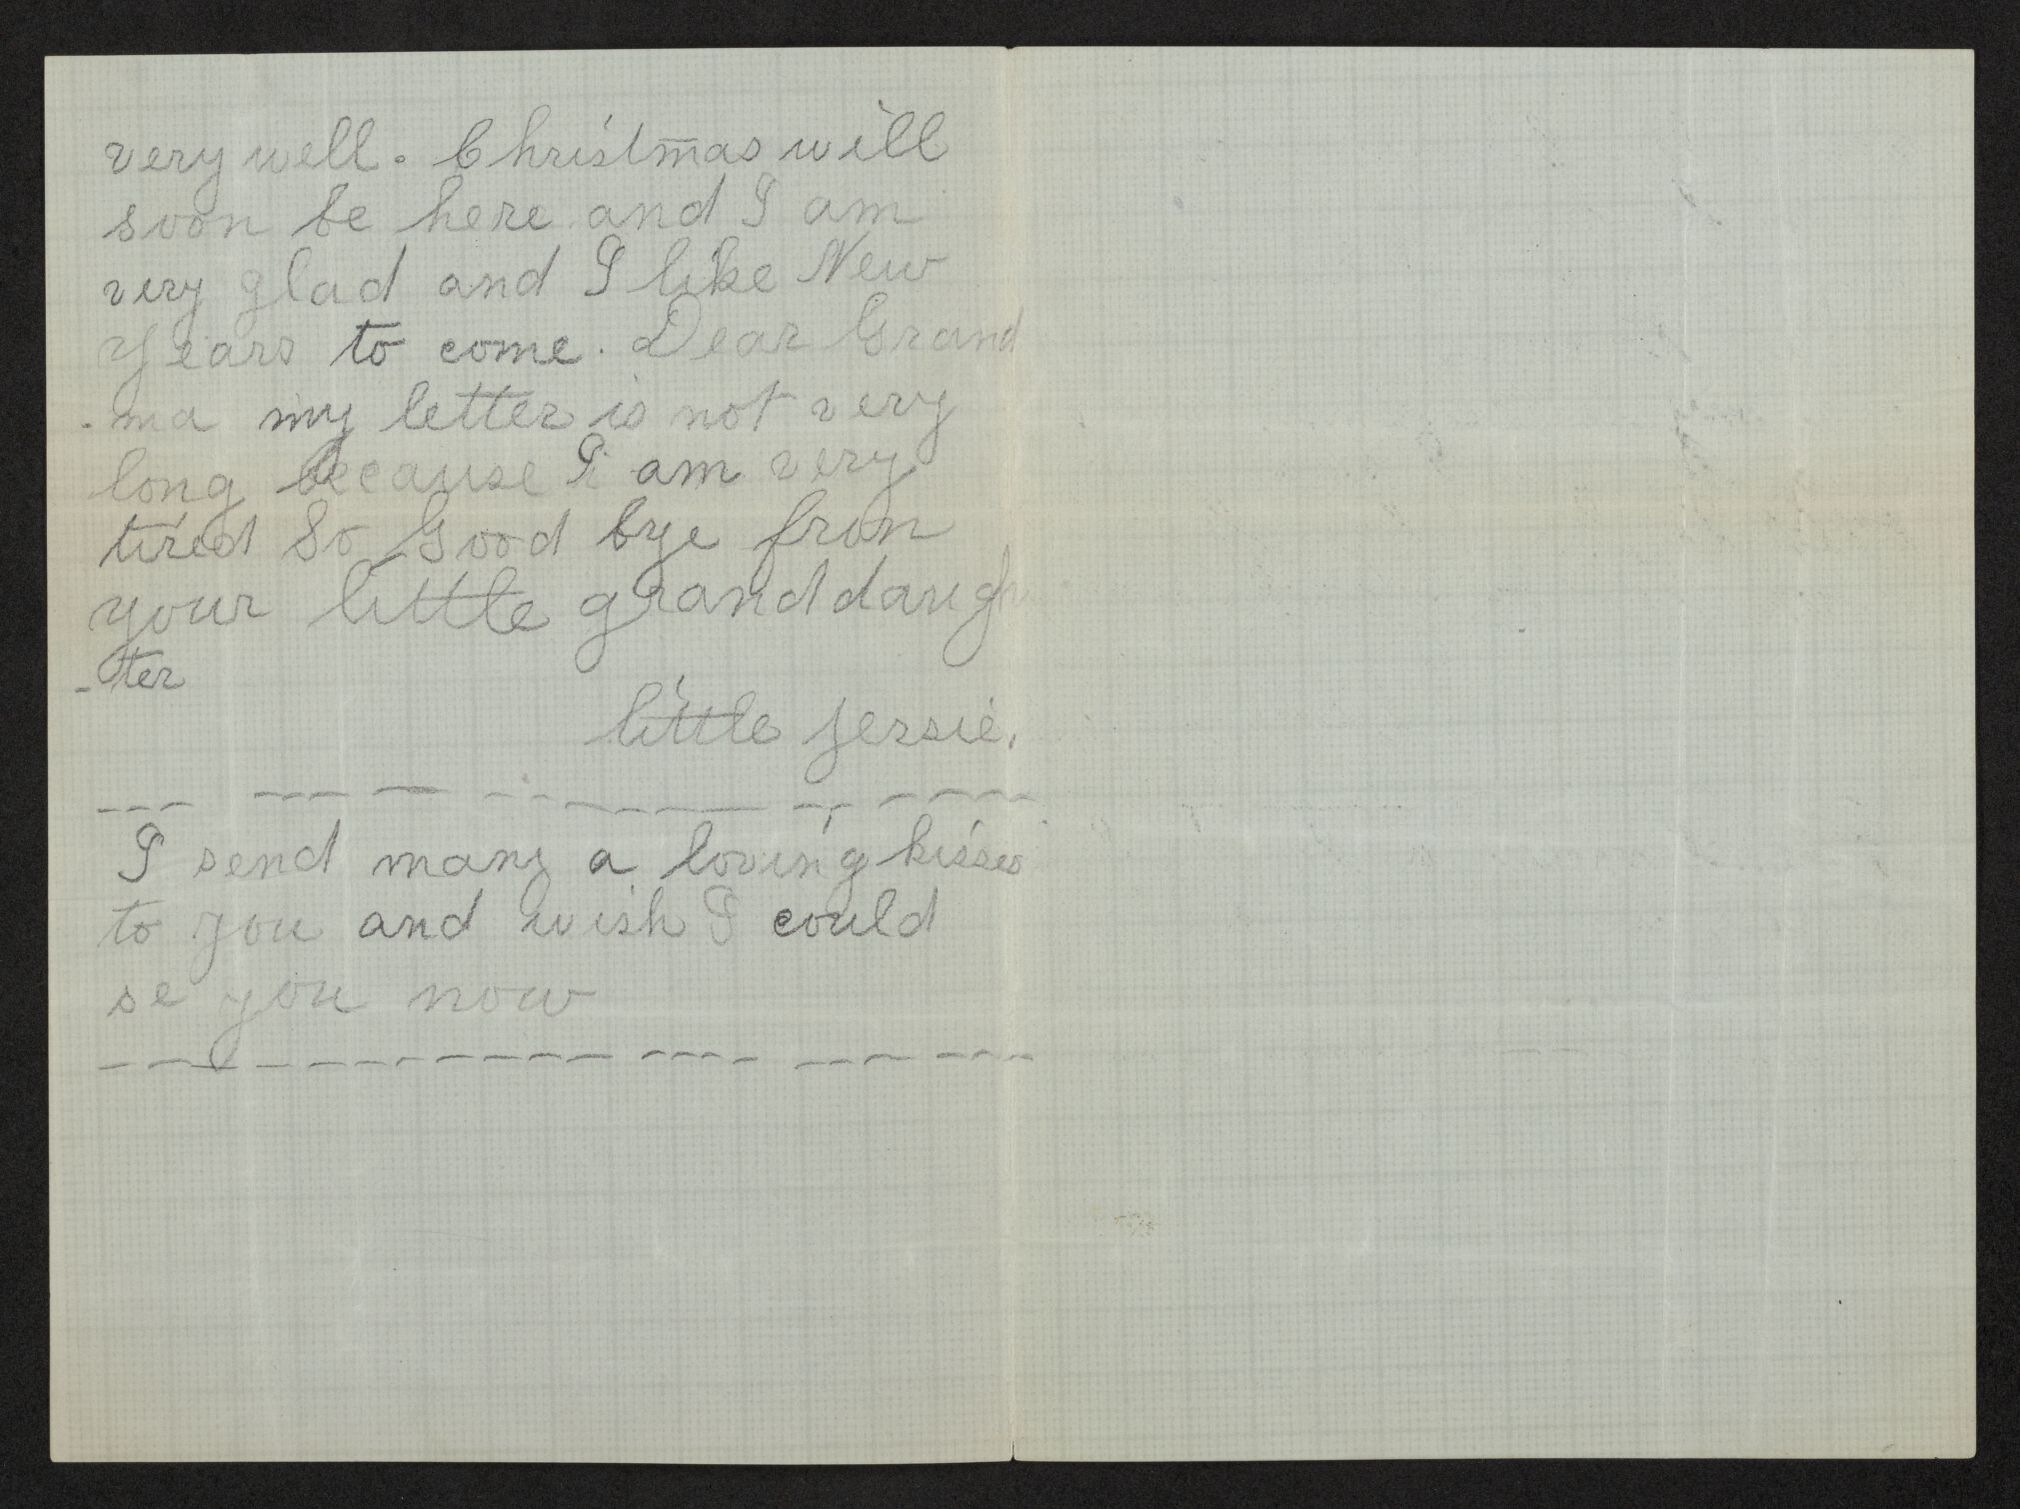 very well. Christmas will
soon be here and I am
very glad and I like New
Years to come. Dear Grand
-ma my letter is not very
long because I am very
tired So Good bye fron
your little granddaugh
-ter
little Jersie.
I send many a loving kisses
to you and wish I could
se you now